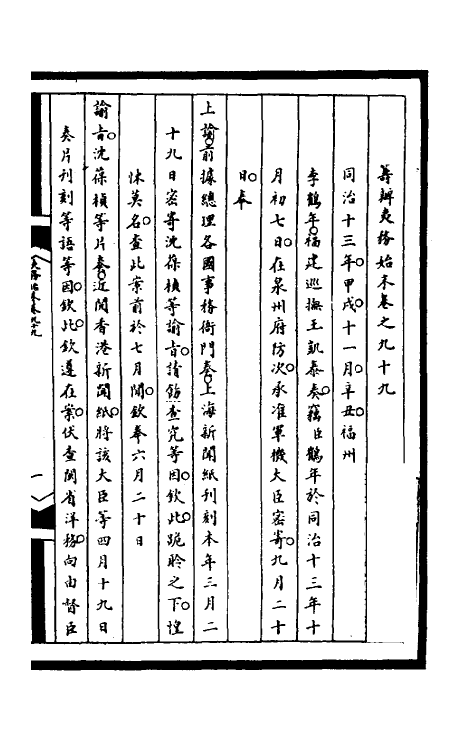 籌辦夷務始末卷之九十九
同治十三年。甲戌。十一月。辛丑。福州
李鶴年。福建巡撫王凱泰奏。竊臣鶴年於同治十三年十
月初七日。在泉州府防次。承准軍機大臣密寄。九月二十
日。奉
上諭。前據總理各國事務衙門奏。上海新聞紙刊刻本年三月二
十九日密寄沈葆楨等諭旨。請飭查究等因。欽此。跪聆之下。惶
悚莫名。查此案前於七月間。欽奉六月二十日
諭旨。沈葆楨等片奏。近閱香港新聞紙。將該大臣等四月十九日
奏片刊刻等語等因。欽此。欽遵在案。伏查閩省洋務。向由督臣